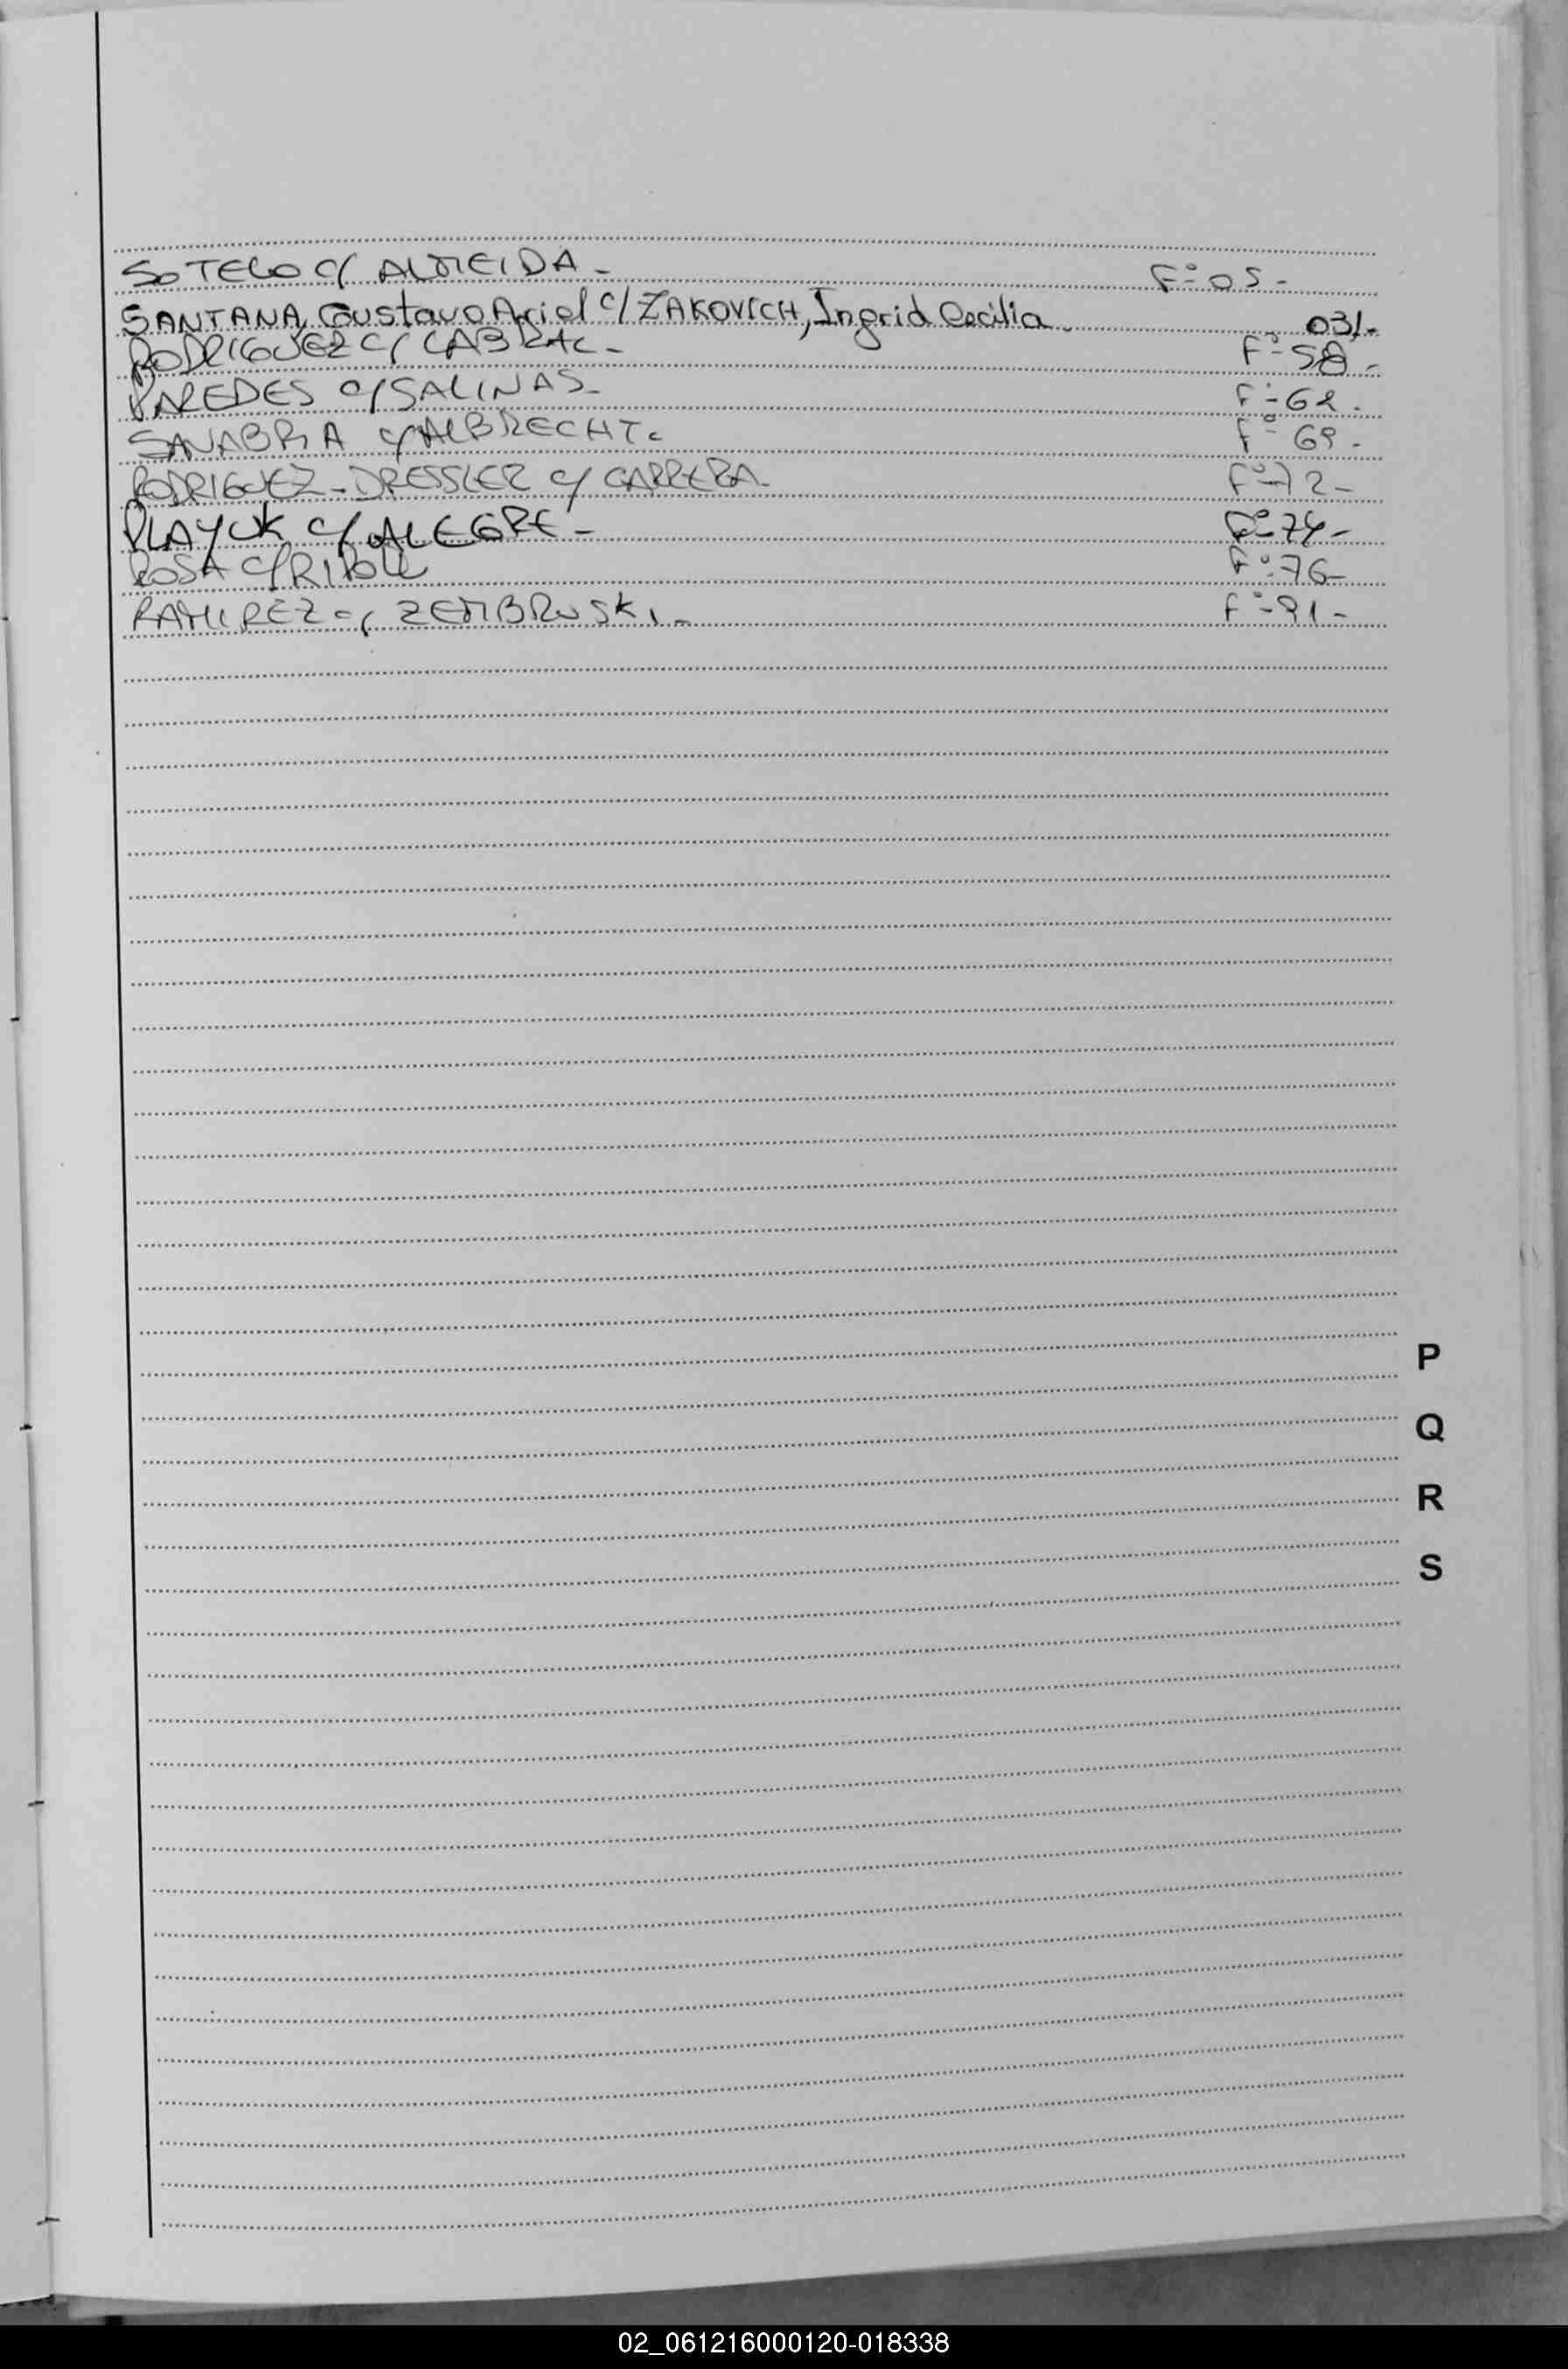 SOTELO c/ ALMEIDA - F° 05 -
SANTANA, Gustavo Ariel c/ ZAKOVICH, Ingrid Cecilia. 031-
RODRIGUEZ c/ CABRAL - F° 58 -
PAREDES c/ SALINAS - F° 62 -
SANABRIA c/ ALBRECHT. F° 69 -
RODRIGUEZ - DRESSLER c/ CARRERA - F° 72 -
PLAYUK c/ ALEGRE - F° 74 -
ROSA c/ RIPOLL F° 76 -
RAMIREZ c/ ZEMBRUSKI - F° 91 -
P
Q
R
S
02_061216000120-018338